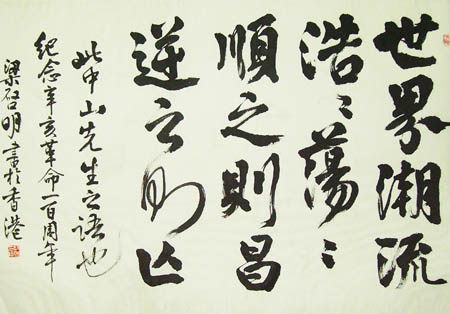 世界潮流
浩〻蕩〻
順之則昌
逆之則亡
此中山先生之語也
紀念辛亥革命一百周年
梁啓明書於香港